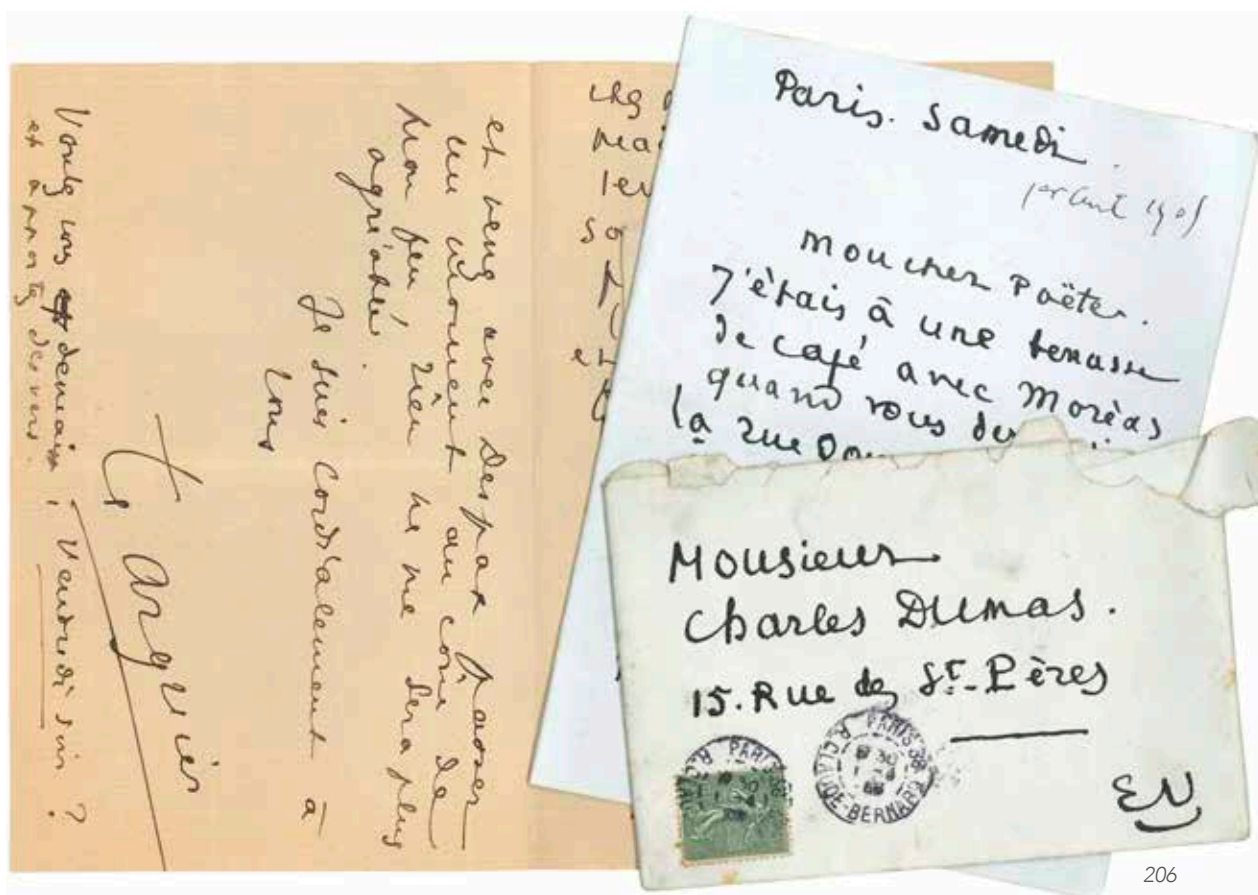 et venez avec Despax passer
un moment au coin de
mon feu. Rien ne me sera plus
agréable.
Je suis cordialement à
vous
Larguier
Voulez vous demain, Vendredi soir ?
et apportez des vers.
Paris. Samedi.
1er Avril 1905
Mon cher Poëte.
J'étais à une terrasse
de café avec Moréas
quand vous
la rue
Monsieur
Charles Dumas.
15. Rue des Sts-Pères
EV
PARIS 38
R. CLAUDE-BERNARD
PARIS 38
206